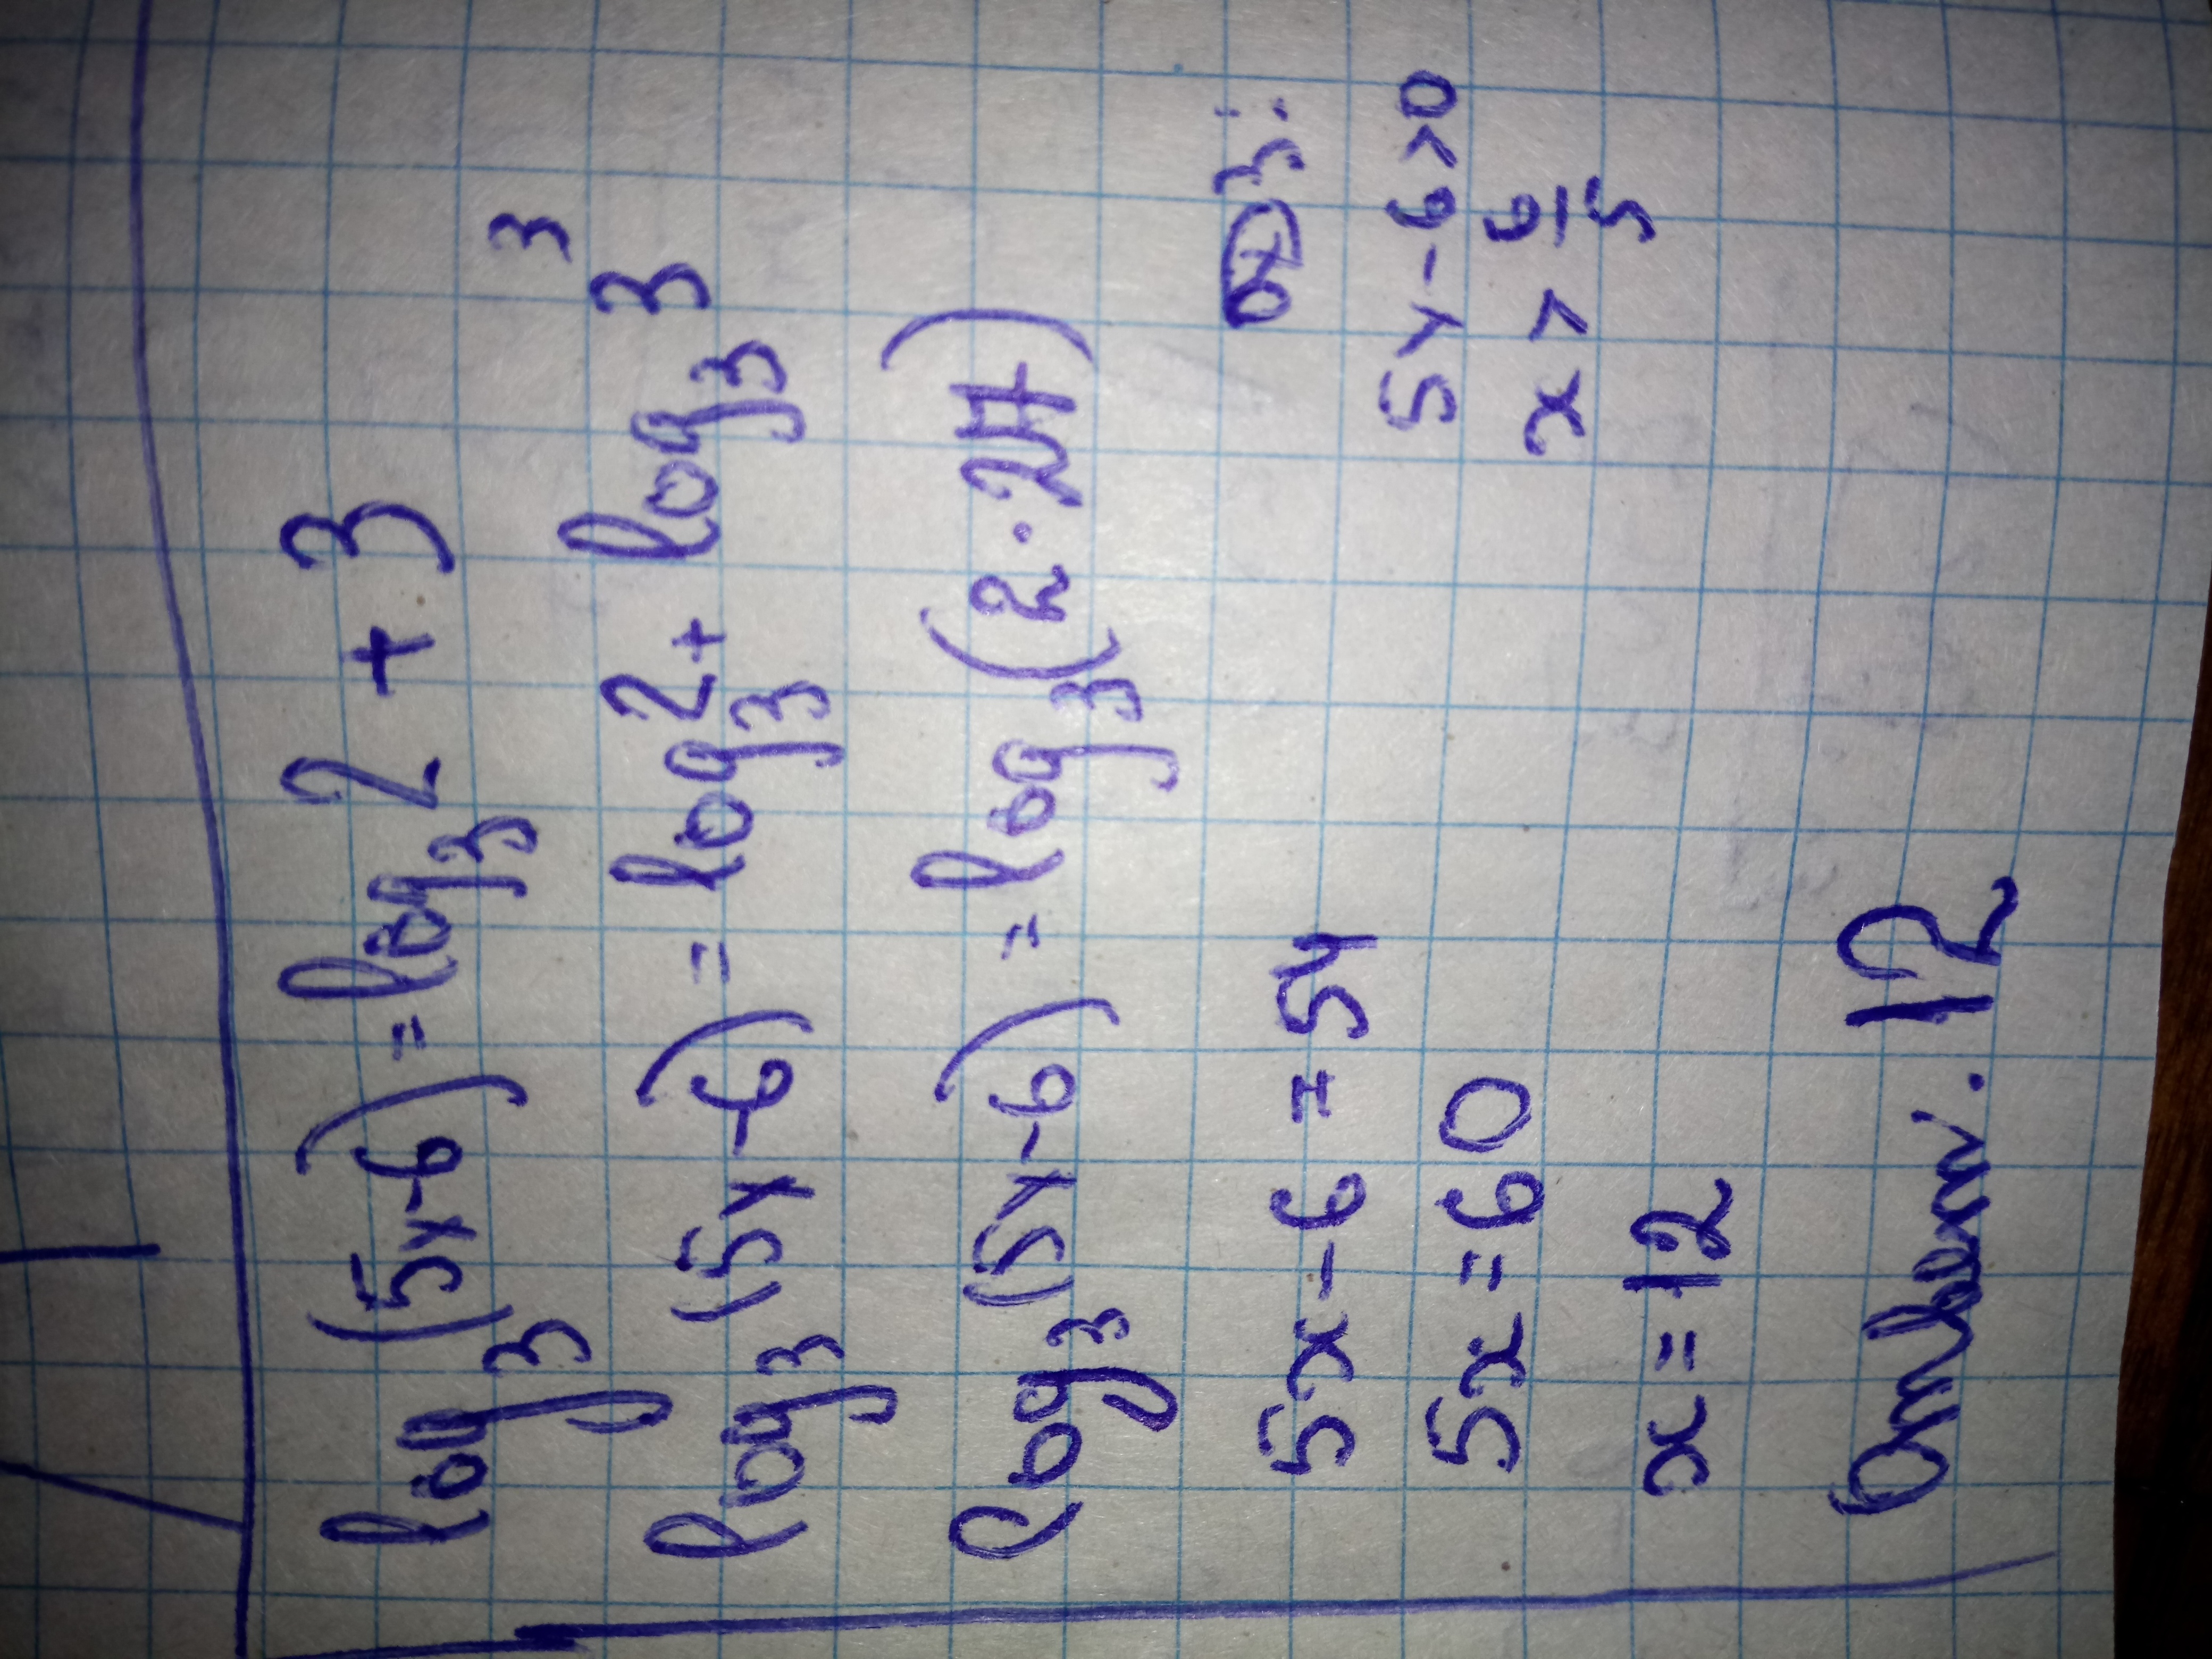 log₃(5x-6) = log₃2 + 3
log₃(5x-6) = log₃2 + log₃3³
log₃(5x-6) = log₃(2·27)
5x-6=54
5x=60
x=12
одз:
5x-6>0
x > 6/5
Ответ. 12